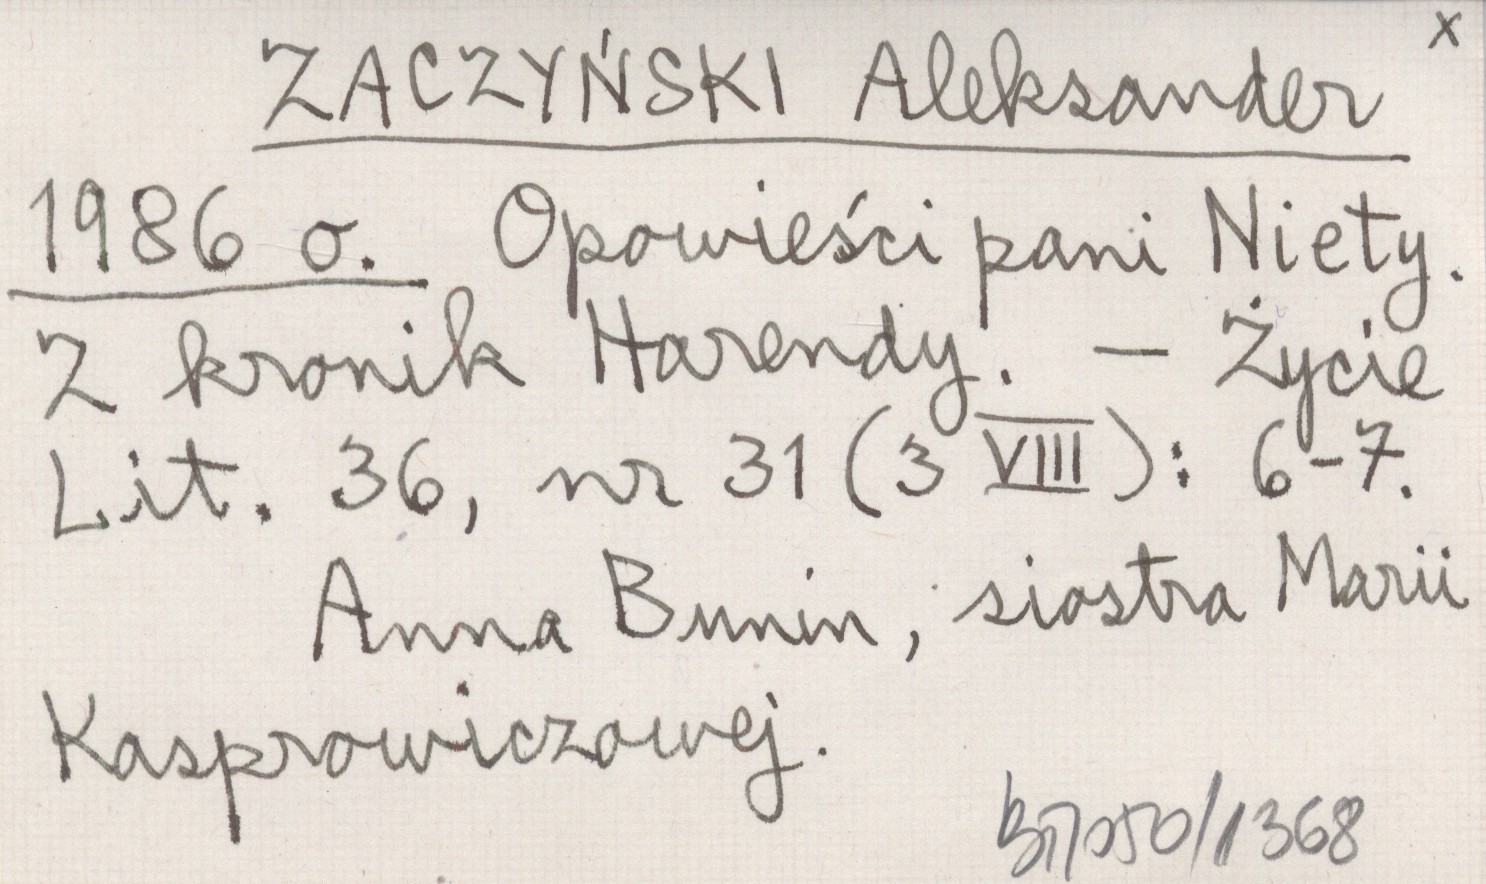 x
ZACZYŃSKI Aleksander
1986 o. Opowieści pani Niety.
Z kronik Harendy. — Życie
Lit. 36, nr 31 (3 VIII): 6-7.
Anna Bunin, siostra Marii
Kasprowiczowej.
/1368